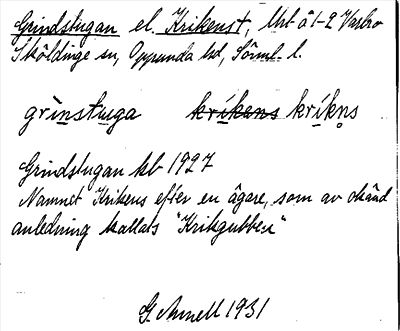 Grindstugan el. Krikenst, lht å 1-2 Varbro
Sköldinge sn, Oppunda hd, Söml. l.
grìnstuga krìkens krìkn̥s
Grindstugan kb 1927
Namnet Krikens efter en ägare, som av okänd
anledning kallats "Krikgubben"
G. Arnell 1931